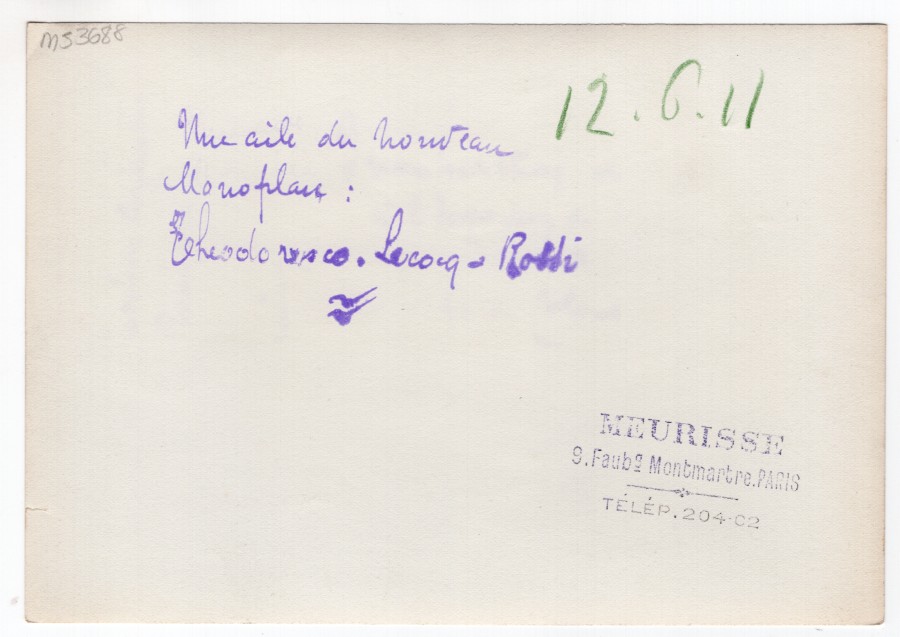 MS3688
12.6.11
Une aile du nouveau
Monoplan :
Theodoresco. Lecocq - Robbi
MEURISSE
9.Faubg Montmartre.PARIS
TÉLÉP.204-C2